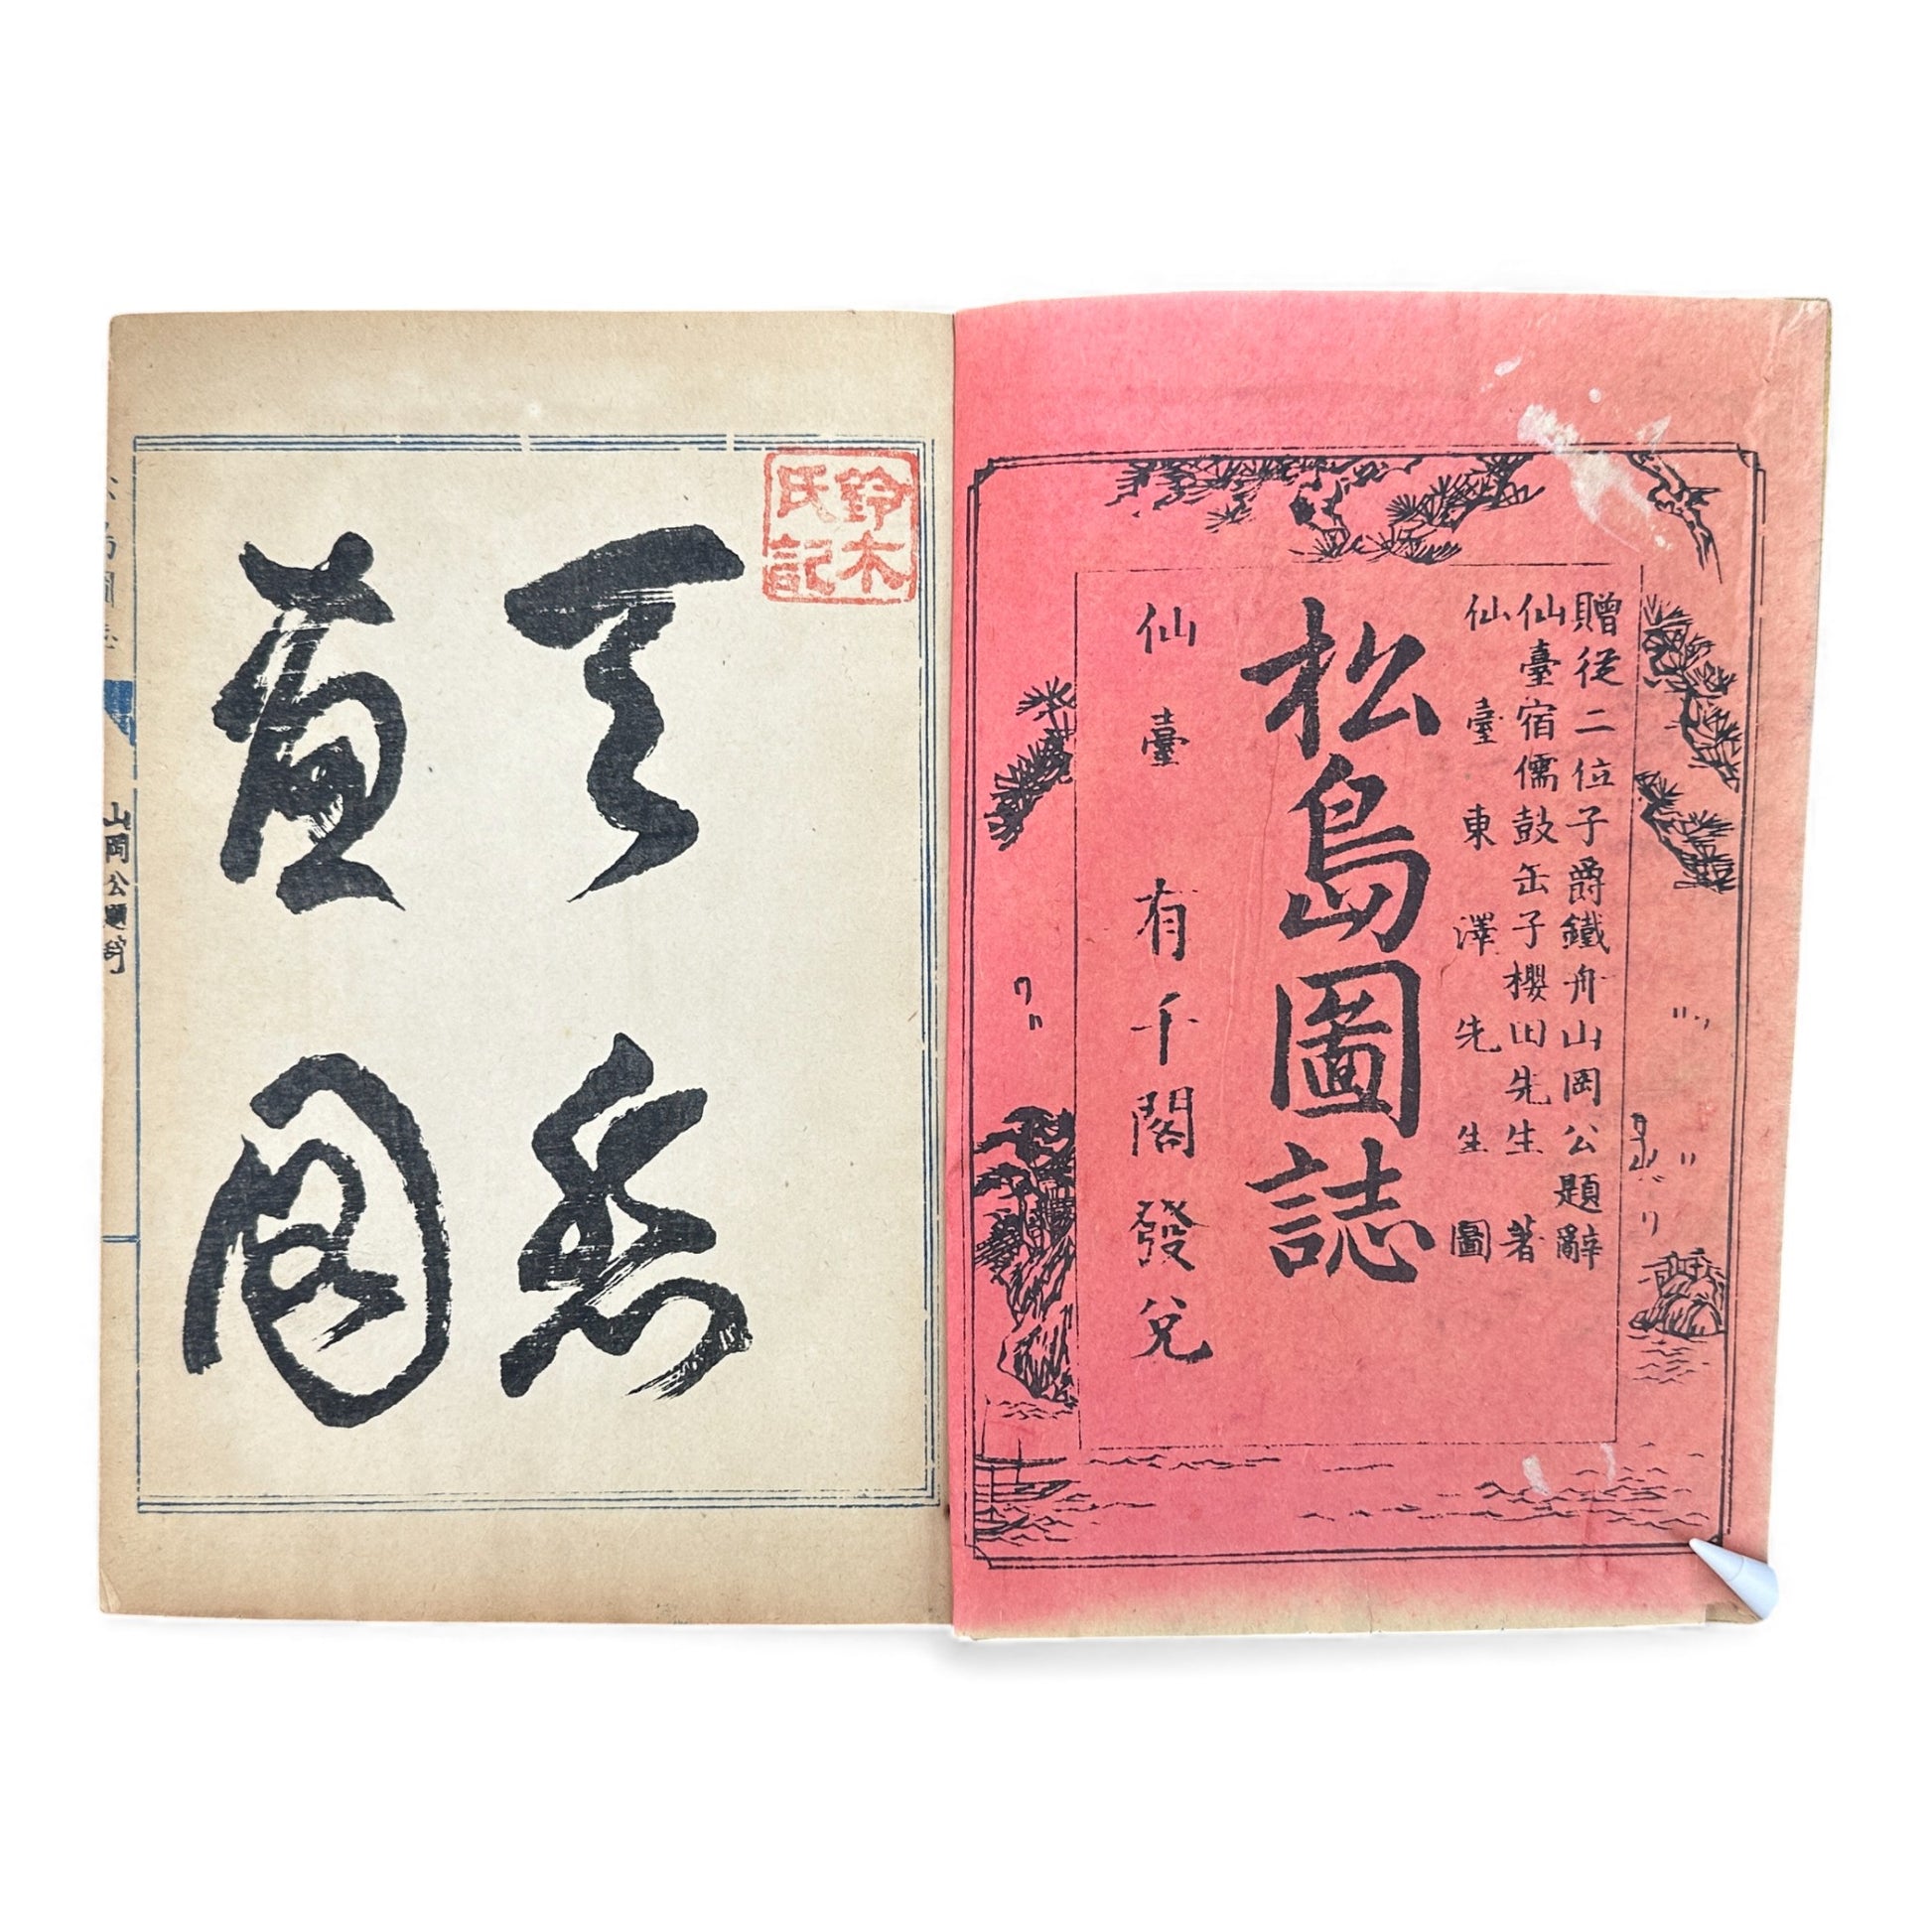 贈従二位子爵鐵舟山岡公題辭
仙臺宿儒鼓缶子櫻田先生著
仙臺東澤先生圖
松島圖誌
仙臺有千閣發兌
鈴木
氏記
天然
畫圖
山岡公題